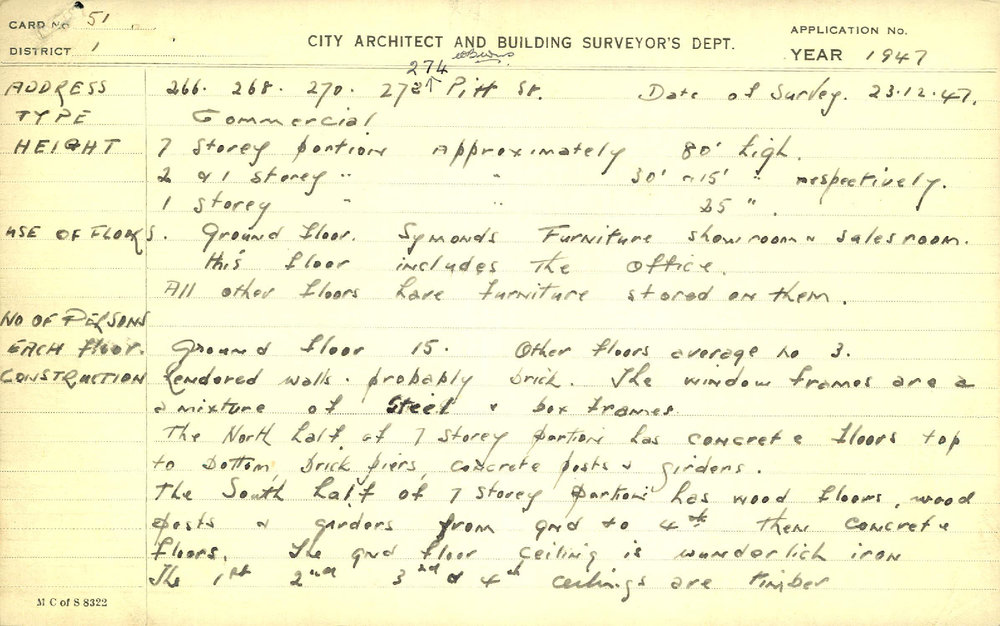 CARD No 51
DISTRICT 1
CITY ARCHITECT AND BUILDING SURVEYOR'S DEPT.
APPLICATION No.
YEAR 1947
274
ADDRESS 266. 268. 270. 272 ↑ Pitt St. Date of Survey. 23.12.47.
TYPE Commercial
HEIGHT 7 Storey portion Approximately 80' high.
2 & 1 storey " " 30' & 15' " respectively.
1 storey " " 25 " .
USE OF FLOORS. Ground floor. Symonds Furniture showroom & salesroom.
this floor includes the office.
All other floors have furniture stored on them.
NO OF PERSONS
EACH floor. Ground floor 15. Other floors average no 3.
CONSTRUCTION Rendered walls. probably brick. The window frames are a
a mixture of Steel & box frames
The North half of 7 Storey portion has concrete floors top
to bottom, brick piers, concrete posts & girders.
The South half of 7 storey portion has wood floors, wood
posts & girders from gnd to 4th then concrete
floors. The gnd floor ceiling is wunderlich iron
The 1st 2nd 3rd & 4th ceilings are timber
M C of S 8322